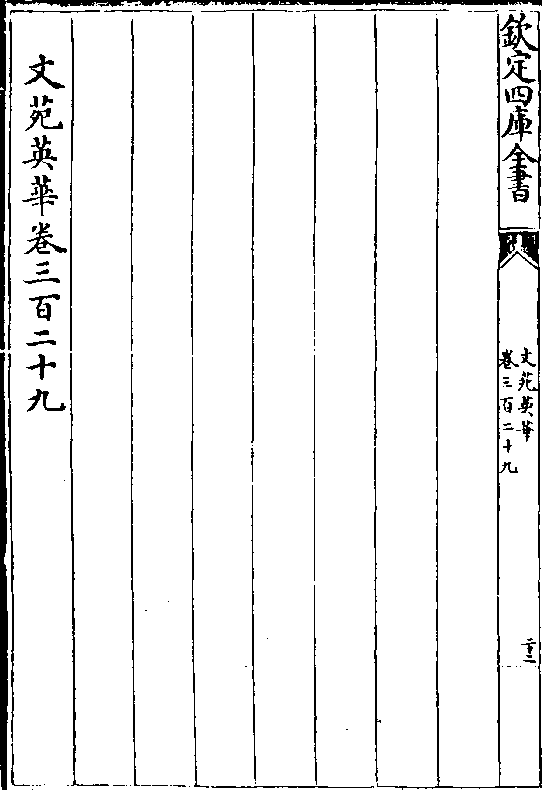 欽定四庫全書
文苑英華
卷三百二十九
二十二
文苑英華卷三百二十九